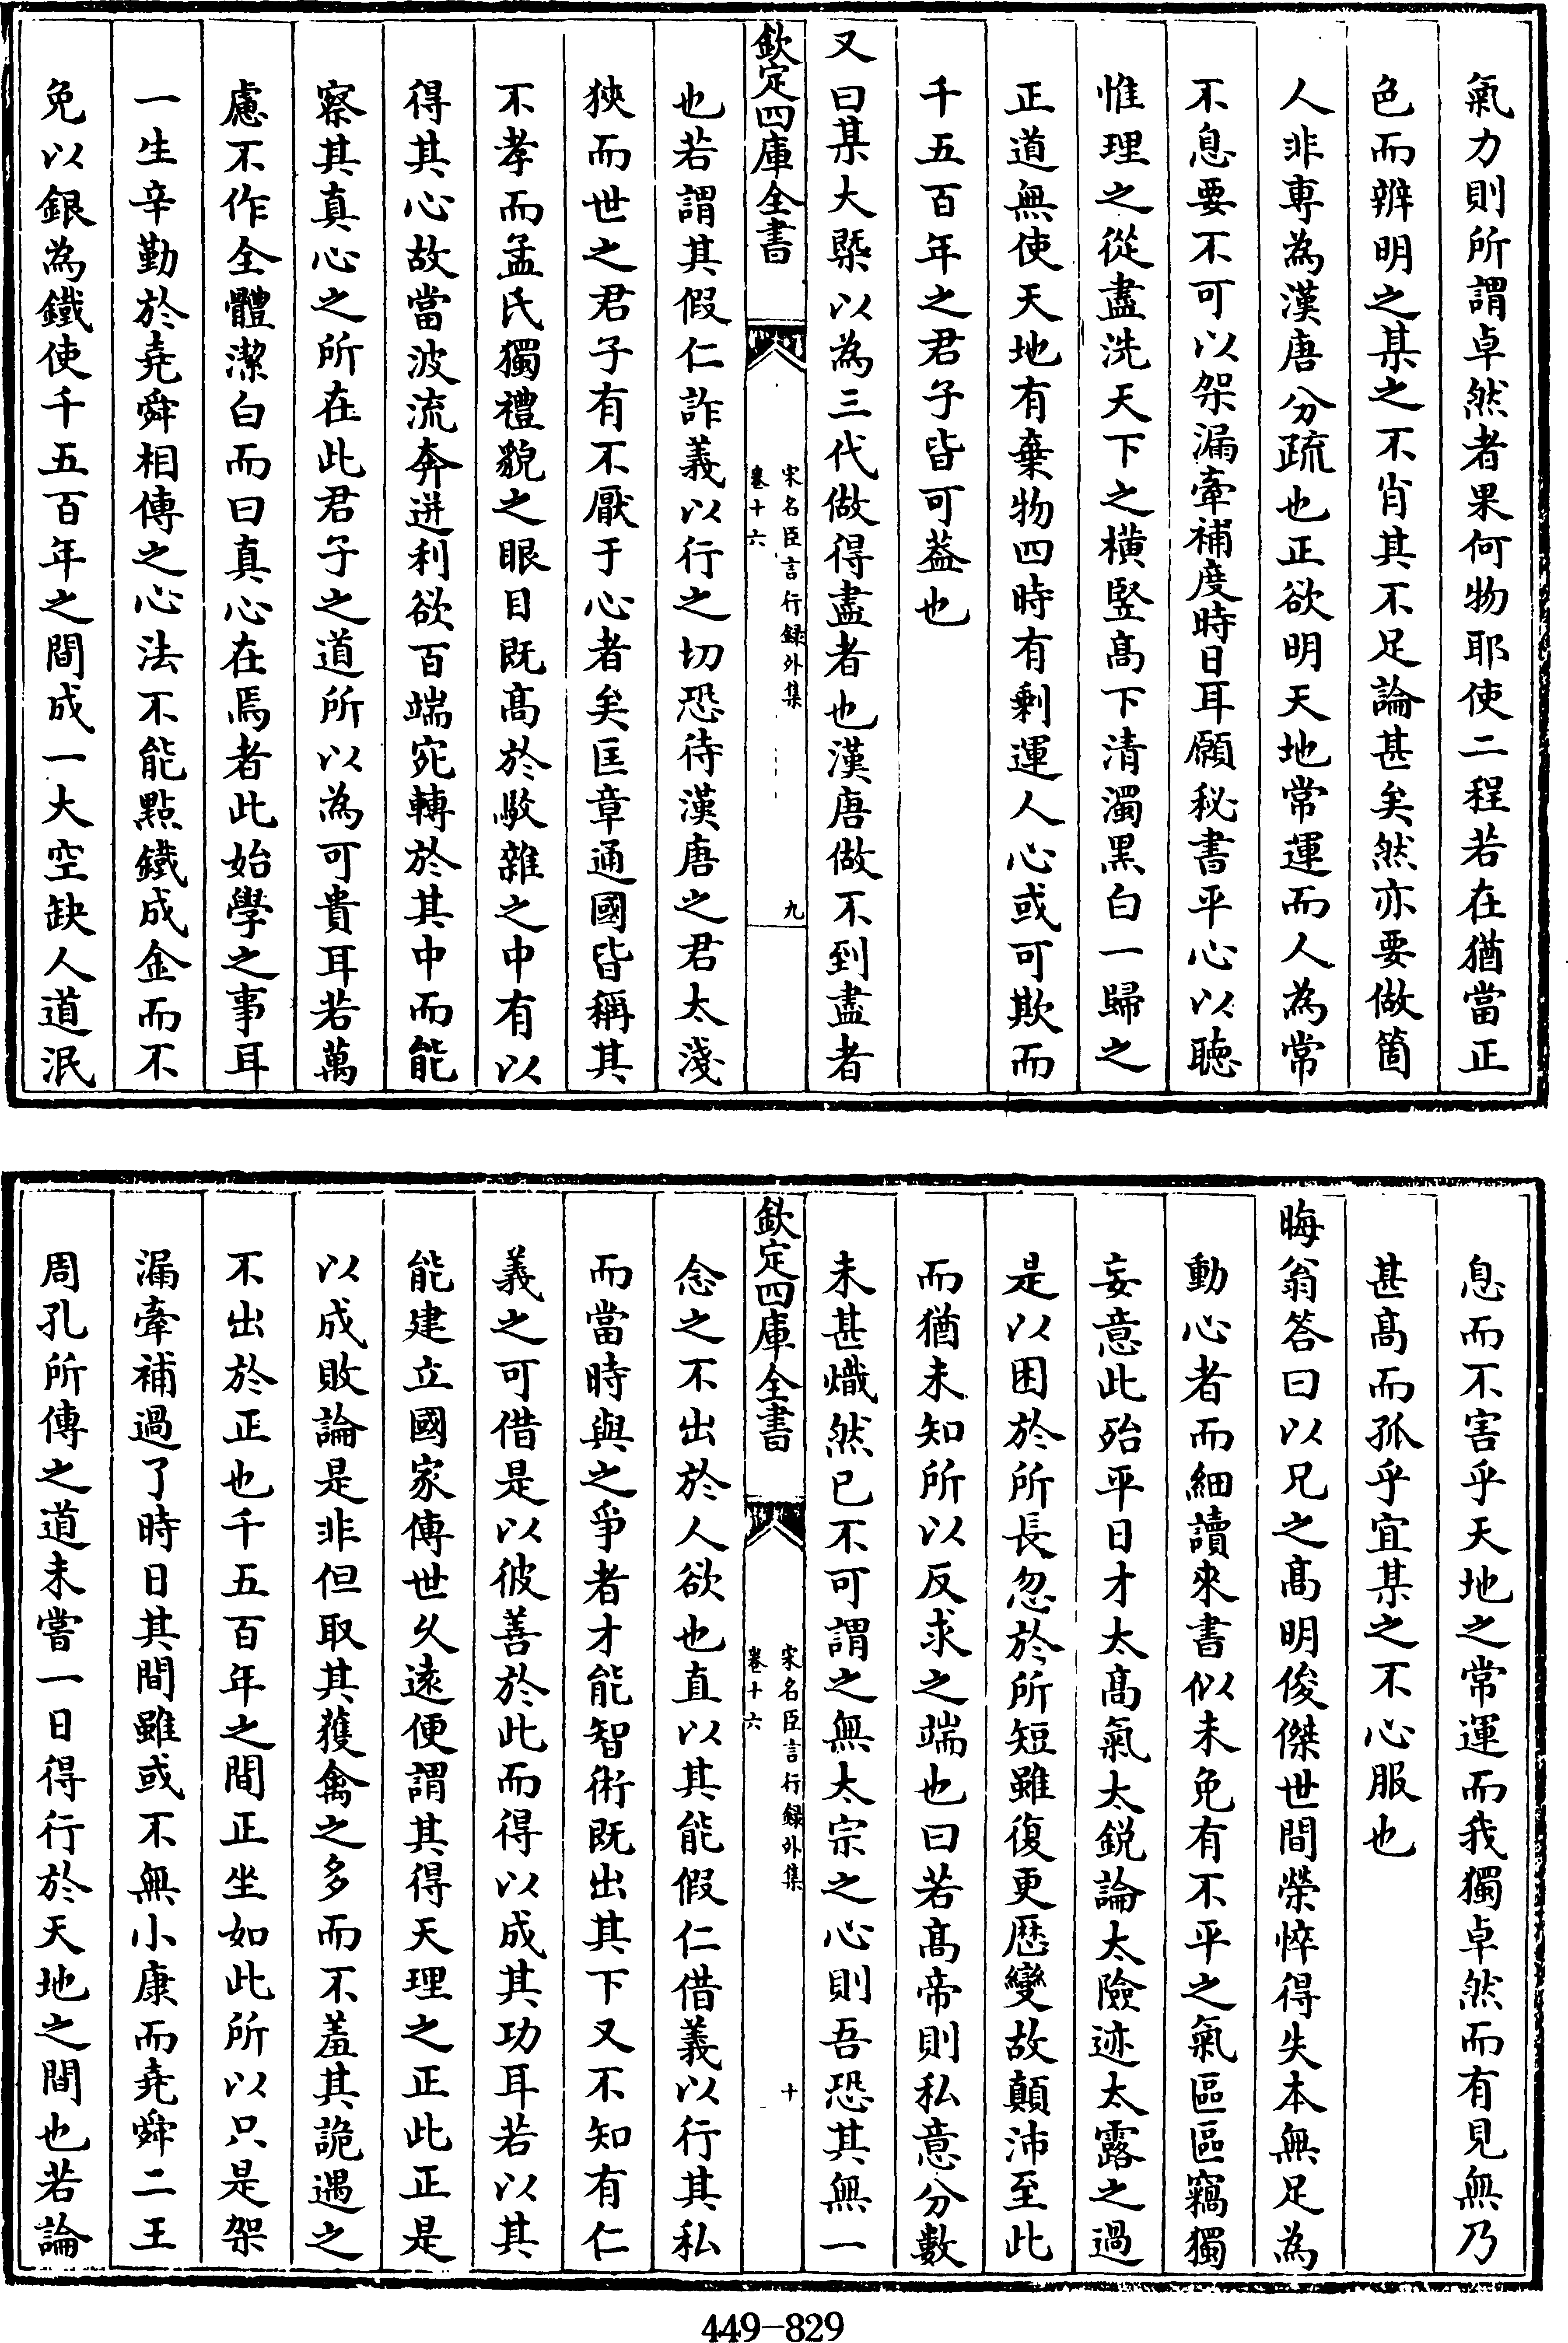 氣力則所謂卓然者果何物耶使二程若在猶當正
色而辨明之某之不肖其不足論甚矣然亦要做箇
人非専為漢唐分疏也正欲明天地常運而人為常
不息要不可以架漏牽補度時日耳願秘書平心以聽
惟理之從盡洗天下之橫竪髙下清濁黒白一歸之
正道無使天地有棄物四時有剰運人心或可欺而
千五百年之君子皆可葢也
又曰某大槩以為三代做得盡者也漢唐做不到盡者
欽定四庫全書
宋名臣言行録外集
卷十六
九
也若謂其假仁詐義以行之切恐待漢唐之君太淺
狹而世之君子有不厭于心者矣匡章通國皆稱其
不孝而孟氏獨禮貌之眼目既髙於駮雜之中有以
得其心故當波流奔迸利欲百端宛轉於其中而能
察其真心之所在此君子之道所以為可貴耳若萬
慮不作全體潔白而曰真心在焉者此始學之事耳
一生辛勤於堯舜相傳之心法不能點鐵成金而不
免以銀為鐵使千五百年之間成一大空缺人道泯
息而不害乎天地之常運而我獨卓然而有見無乃
甚髙而孤乎宜某之不心服也
晦翁答曰以兄之髙明俊傑世間榮悴得失本無足為
動心者而細讀來書似未免有不平之氣區區竊獨
妄意此殆平日才太髙氣太銳論太險迹太露之過
是以困於所長忽於所短雖復更歴變故顛沛至此
而猶未知所以反求之端也曰若髙帝則私意分數
未甚熾然已不可謂之無太宗之心則吾恐其無一
欽定四庫全書
宋名臣言行録外集
卷十六
十
念之不出於人欲也直以其能假仁借義以行其私
而當時與之爭者才能智術既出其下又不知有仁
義之可借是以彼善於此而得以成其功耳若以其
能建立國家傳世久遠便謂其得天理之正此正是
以成敗論是非但取其獲禽之多而不羞其詭遇之
不出於正也千五百年之間正坐如此所以只是架
漏牽補過了時日其間雖或不無小康而堯舜二王
周孔所傳之道未嘗一日得行於天地之間也若論
449-829